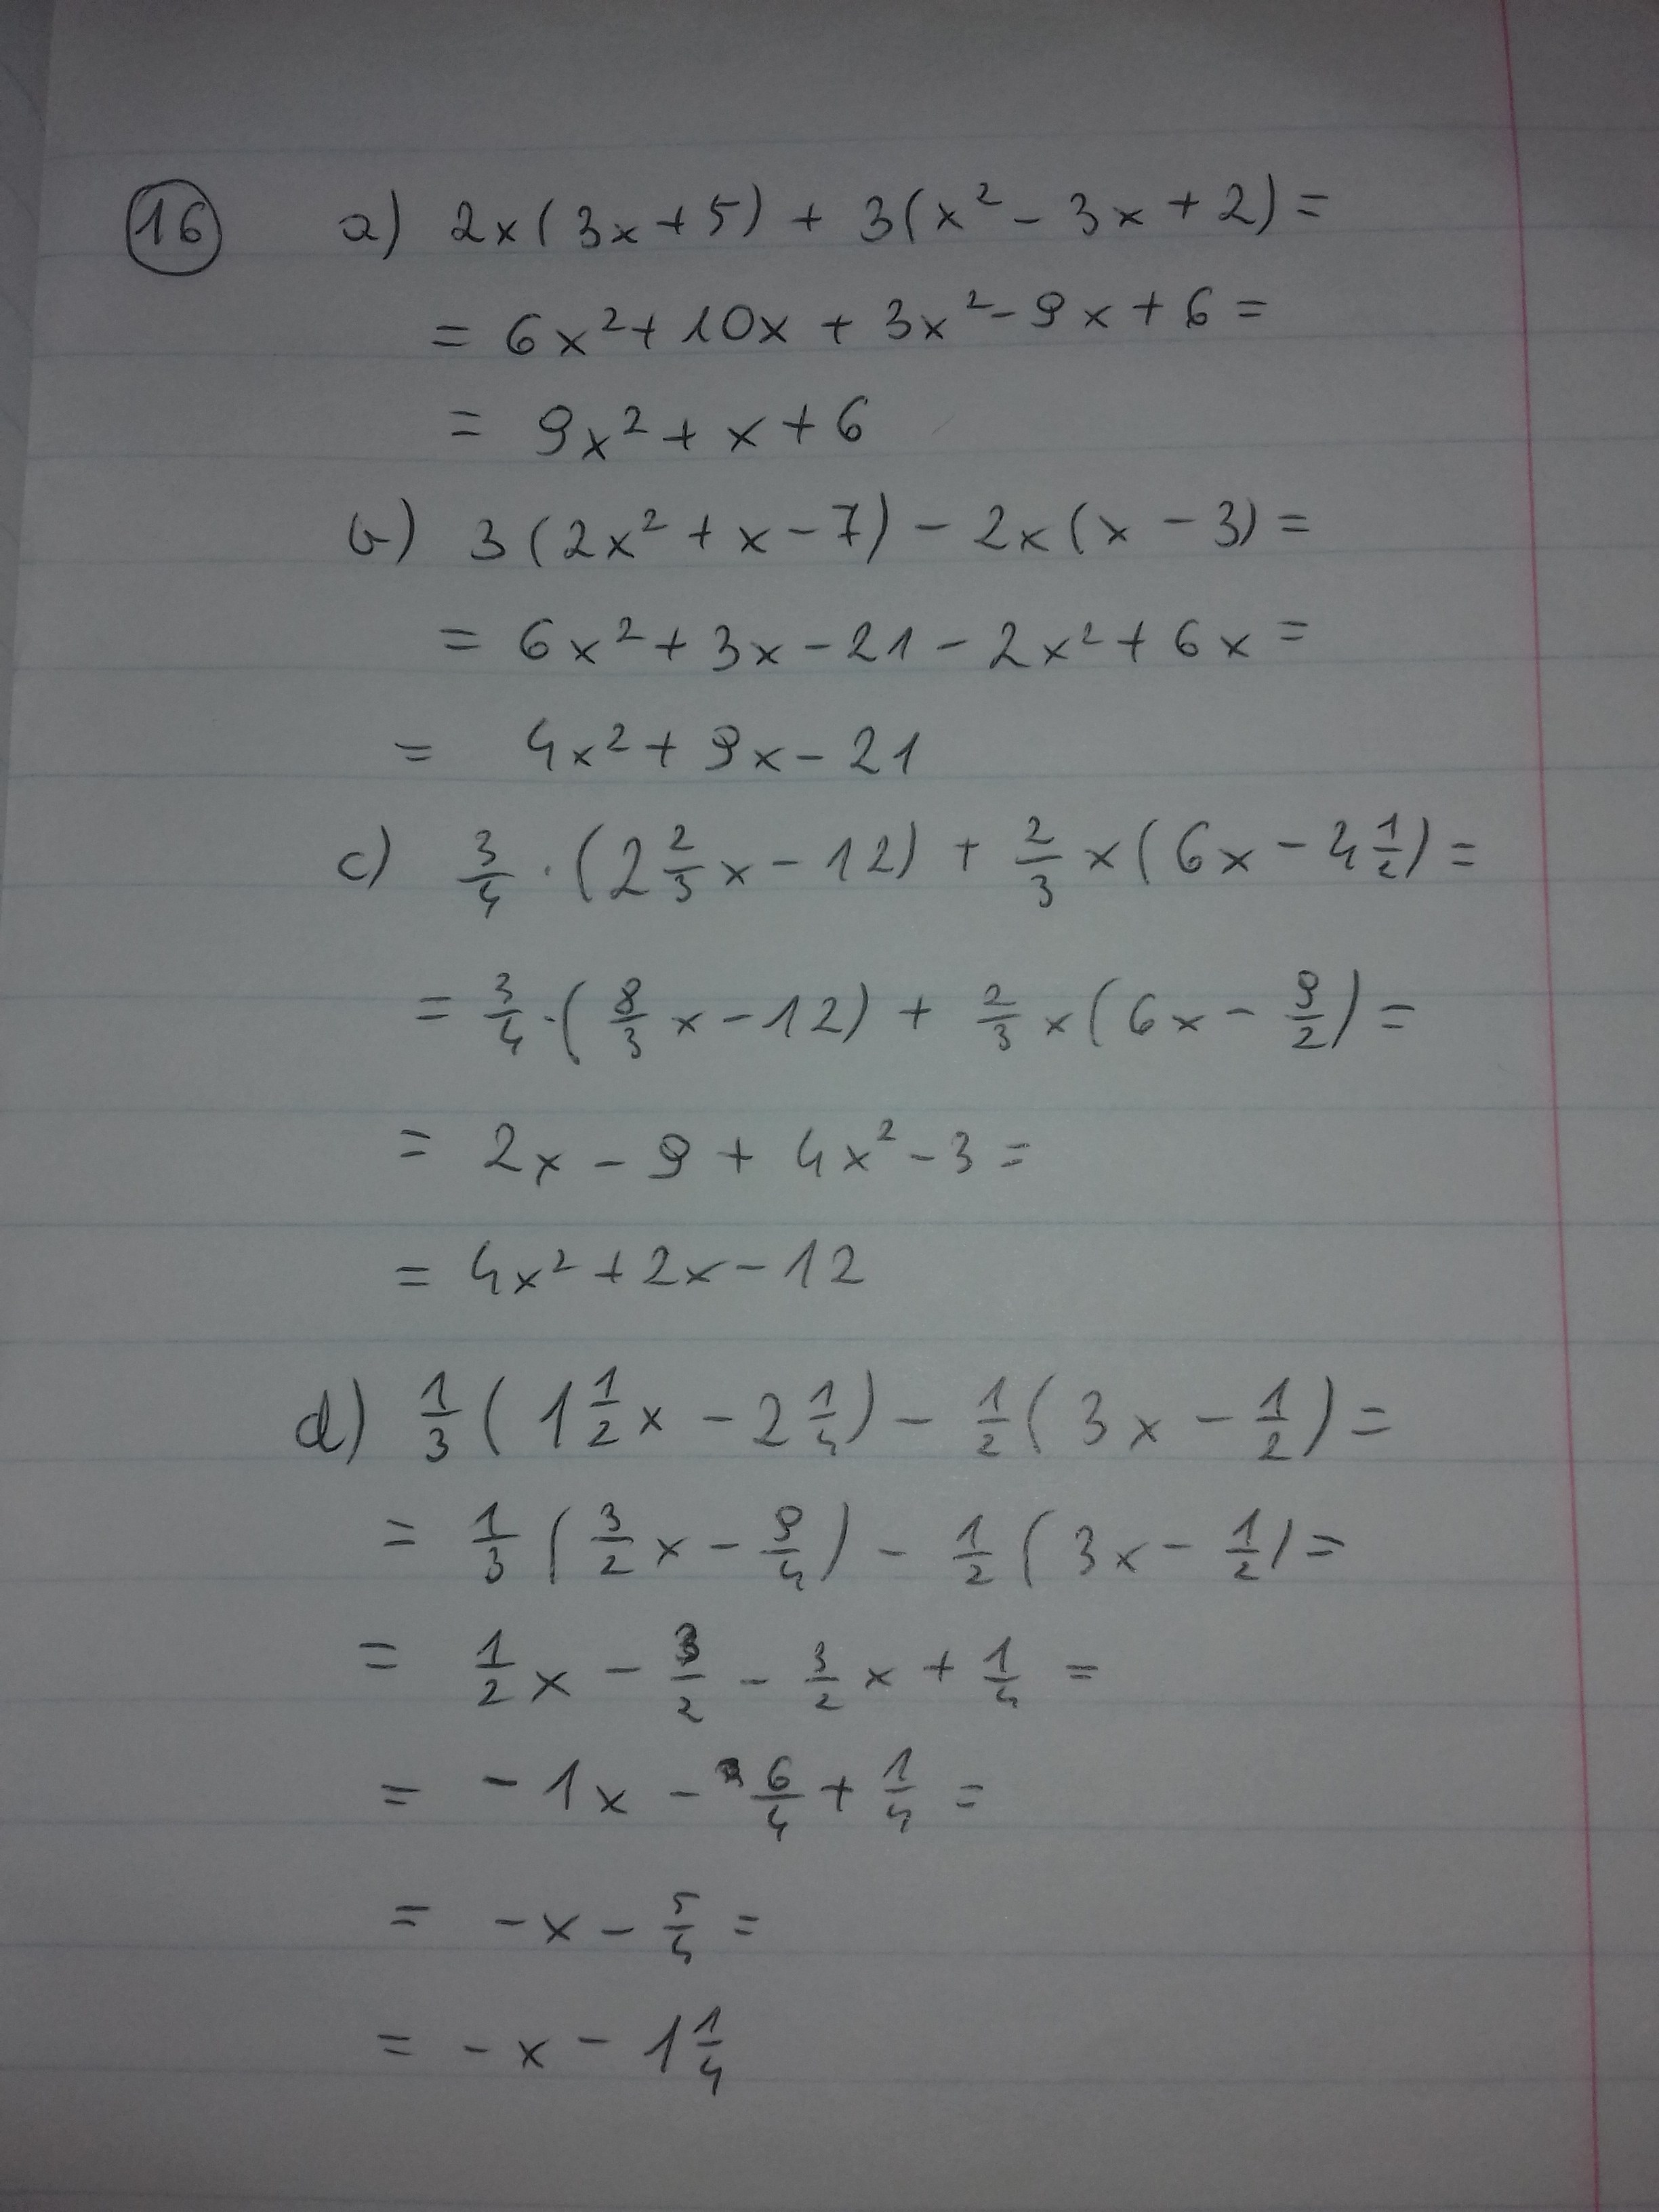 16 a) 2x(3x+5) + 3(x² - 3x + 2) =
= 6x² + 10x + 3x² - 9x + 6 =
= 9x² + x + 6
b) 3(2x² + x - 7) - 2x(x - 3) =
= 6x² + 3x - 21 - 2x² + 6x =
= 4x² + 9x - 21
c) 3/4 · (2 2/3 x - 12) + 2/3 x (6x - 4 1/2) =
= 3/4 · (8/3 x - 12) + 2/3 x (6x - 9/2) =
= 2x - 9 + 4x² - 3 =
= 4x² + 2x - 12
d) 1/3 (1 1/2 x - 2 1/4) - 1/2 (3x - 1/2) =
= 1/3 (3/2 x - 9/4) - 1/2 (3x - 1/2) =
= 1/2 x - 3/2 - 3/2 x + 1/4 =
= - 1x - 6/4 + 1/4 =
= - x - 5/4 =
= - x - 1 1/4